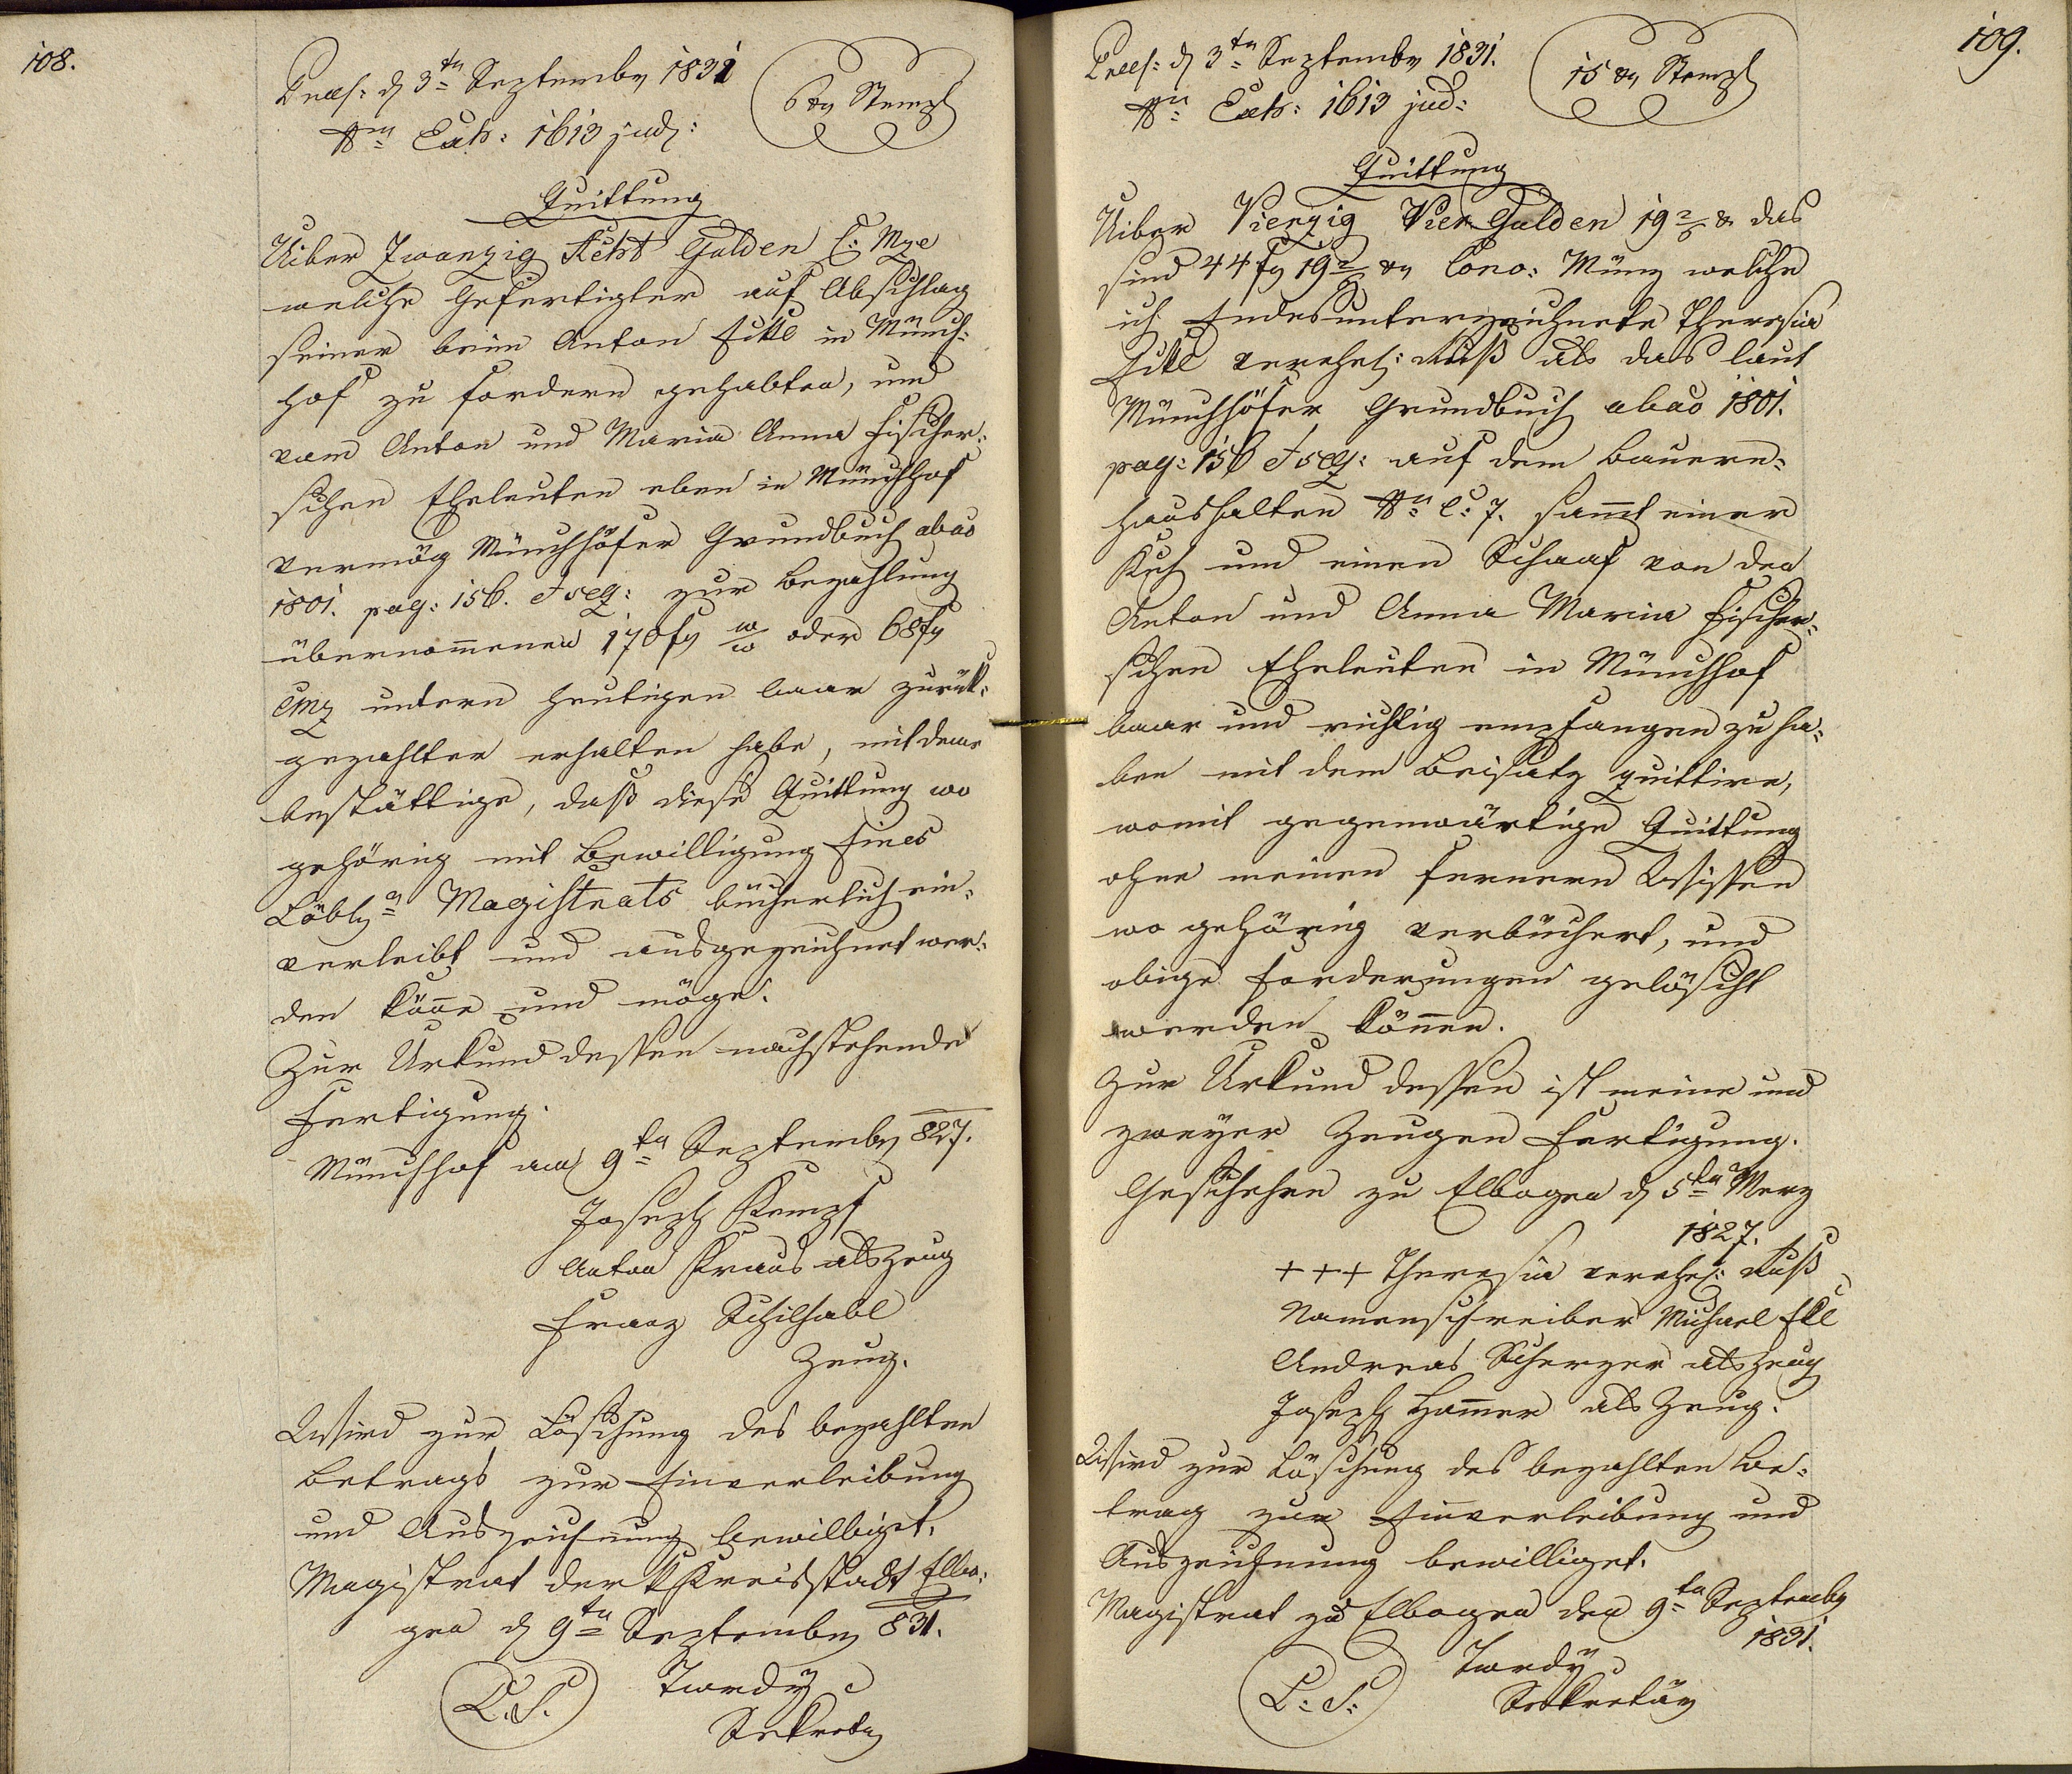 108.
Praes: d 3ten September 1831
6 xr Stempl
Nm Exh: 1613 jud:
Quittung
Uiber Zwanzig Acht Gulden C: Mze
welche Gefertigter auf Abschlag
seiner beim Anton Fikl in Münch-
hof zu fordern gehabten, und
vom Anton und Maria Anna Fischer-
schen Eheleuten eben in Münchhof
vermög Münchhöfer Grundbuch abao
1801. pag: 156. et seq: zur Bezahlung
übernommenen 170 fr WW oder 68 fr
CMz untern heutigen baar zurük-
gezahlter erhalten habe, mit deme
bestättige, daß diese Quittung wo
gehörig mit Bewilligung Eines
Löbln Magistrats bücherlich ein-
verleibt und ausgezeichnet wer-
den könne und möge.
Zur Urkund dessen nachstehende
Fertigung.
Münchhof am 9ten September 827.
Joseph Kempf
Anton Kraus als Zeug
Franz Schilhabl
Zeug.
Wird zur Löschung des bezahlten
Betrags zur Einverleibung
und Auszeichnung bewilliget.
Magistrat der k Kreisstadt Elbo-
gen d 9ten September 831.
L. S.
Twrdÿ
Sekretär
109.
Praes: d 3ten September 1831.
15 xr Stempl
Nn Exh: 1613 jud:
Quittung
Uiber Vierzig Vier Gulden 19 2/ x das
sind 44 fr 19 2/ xr Conv: Münz welche
ich Endesunterzeichnete Theresia
Fikl verehel: Kuß als das laut
Münchhöfer Grundbuch abao 1801.
pag: 156 et seq: auf dem Bauern-
haushalten Nn C: 7. sammt einer
Kuh und einen Schaaf von den
Anton und Anna Maria Fischer-
schen Eheleuten in Münchhof
baar und richtig empfangen zu ha-
ben mit dem Beisatz quittire,
womit gegenwärtige Quittung
ohne meinen fernern Wissen
wo gehörig verbüchert, und
obige Forderungen gelöscht
werden können.
Zur Urkund dessen ist meine und
zweÿer Zeugen Fertigung.
Geschehen zu Elbogen d 5ten Merz
1827.
+ + + Theresia verehel: Kuß
Namenschreiber Michael Ekl
Andreas Scherzer als Zeug
Joseph Hammer als Zeug.
Wird zur Löschung des bezahlten Be-
trag zur Einverleibung und
Auszeichnung bewilliget.
Magistrat zu Elbogen den 9ten September
1831.
L: S:
Twrdÿ
Sekretär